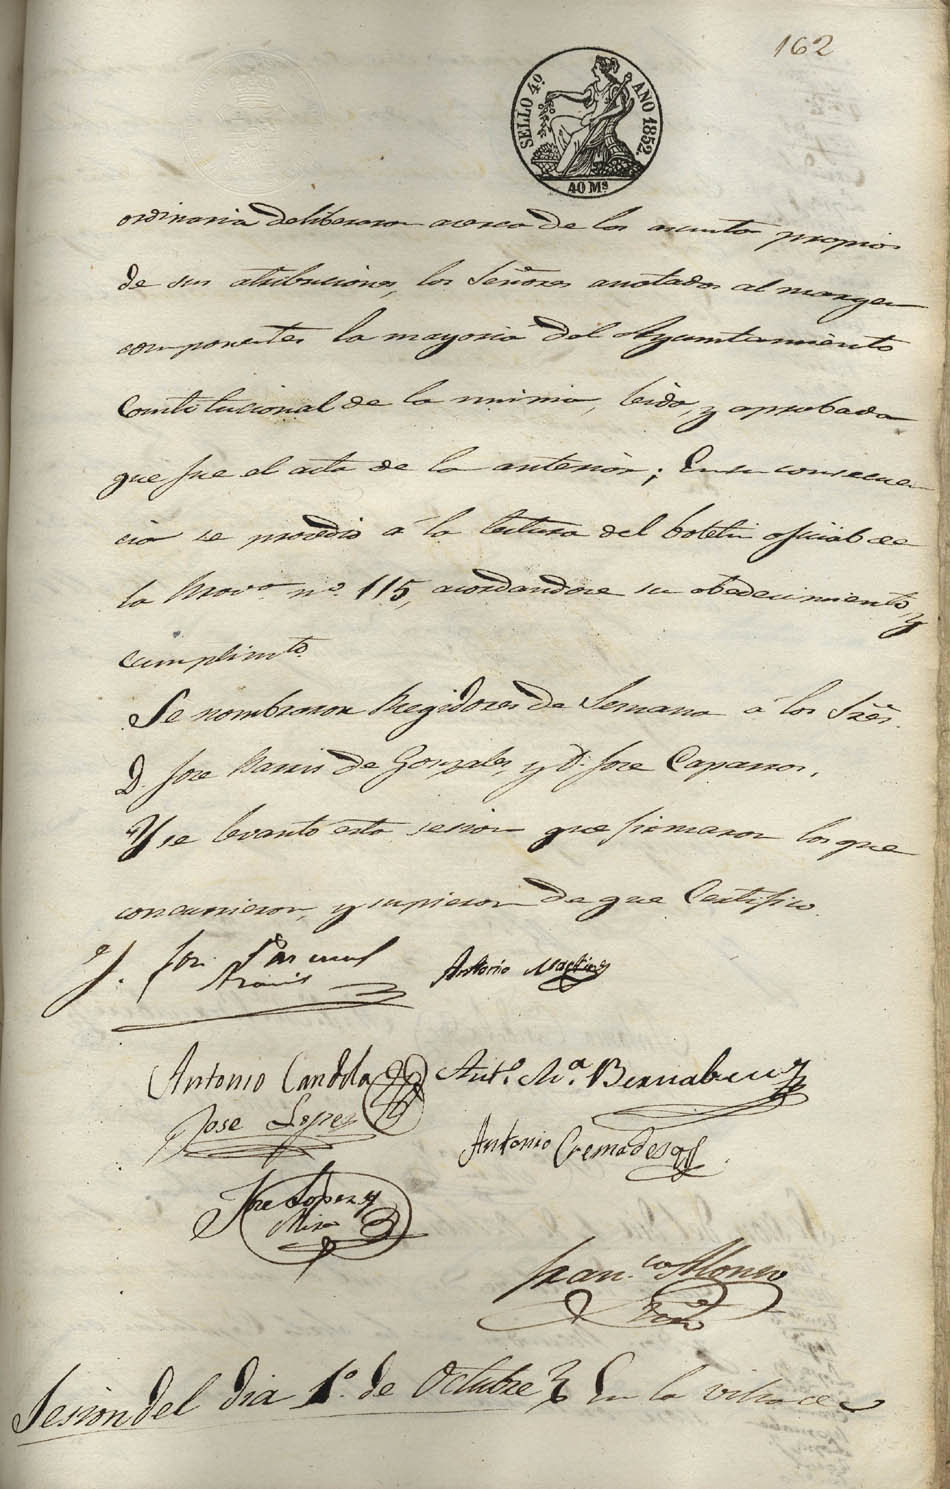 162
SELLO 4º AÑO 1852.
40 Ms
ordinaria deliberaron acerca de los asuntos propios
de sus atribuciones, los Señores anotados al margen
componentes la mayoria del Ayuntamiento
Constitucional de la misma, leida, y aprobada
que fue el acta de la anterior; En su consecuen
cia se procedio a la lectura del boletin oficial de
la Prova nº. 115, acordandose su obedecimiento, y
cumplimto.
Se nombraron Regidores de Semana á los Sres.
D. Jose Maria de Gonzales, y D. Jose Caparros.
Y se levanto esta sesion que firmaron los que
concurrieron, y supieron de que Certifico.
Jose Pascual
Antonio Martinez
Antonio Candela
Antº. Mª. Bernabeu
Jose Lopez
Antonio Cremades
Jose Lopez y
Mira
Franco. Alonso
Sesion del dia 1º. de Octubre En la villa de